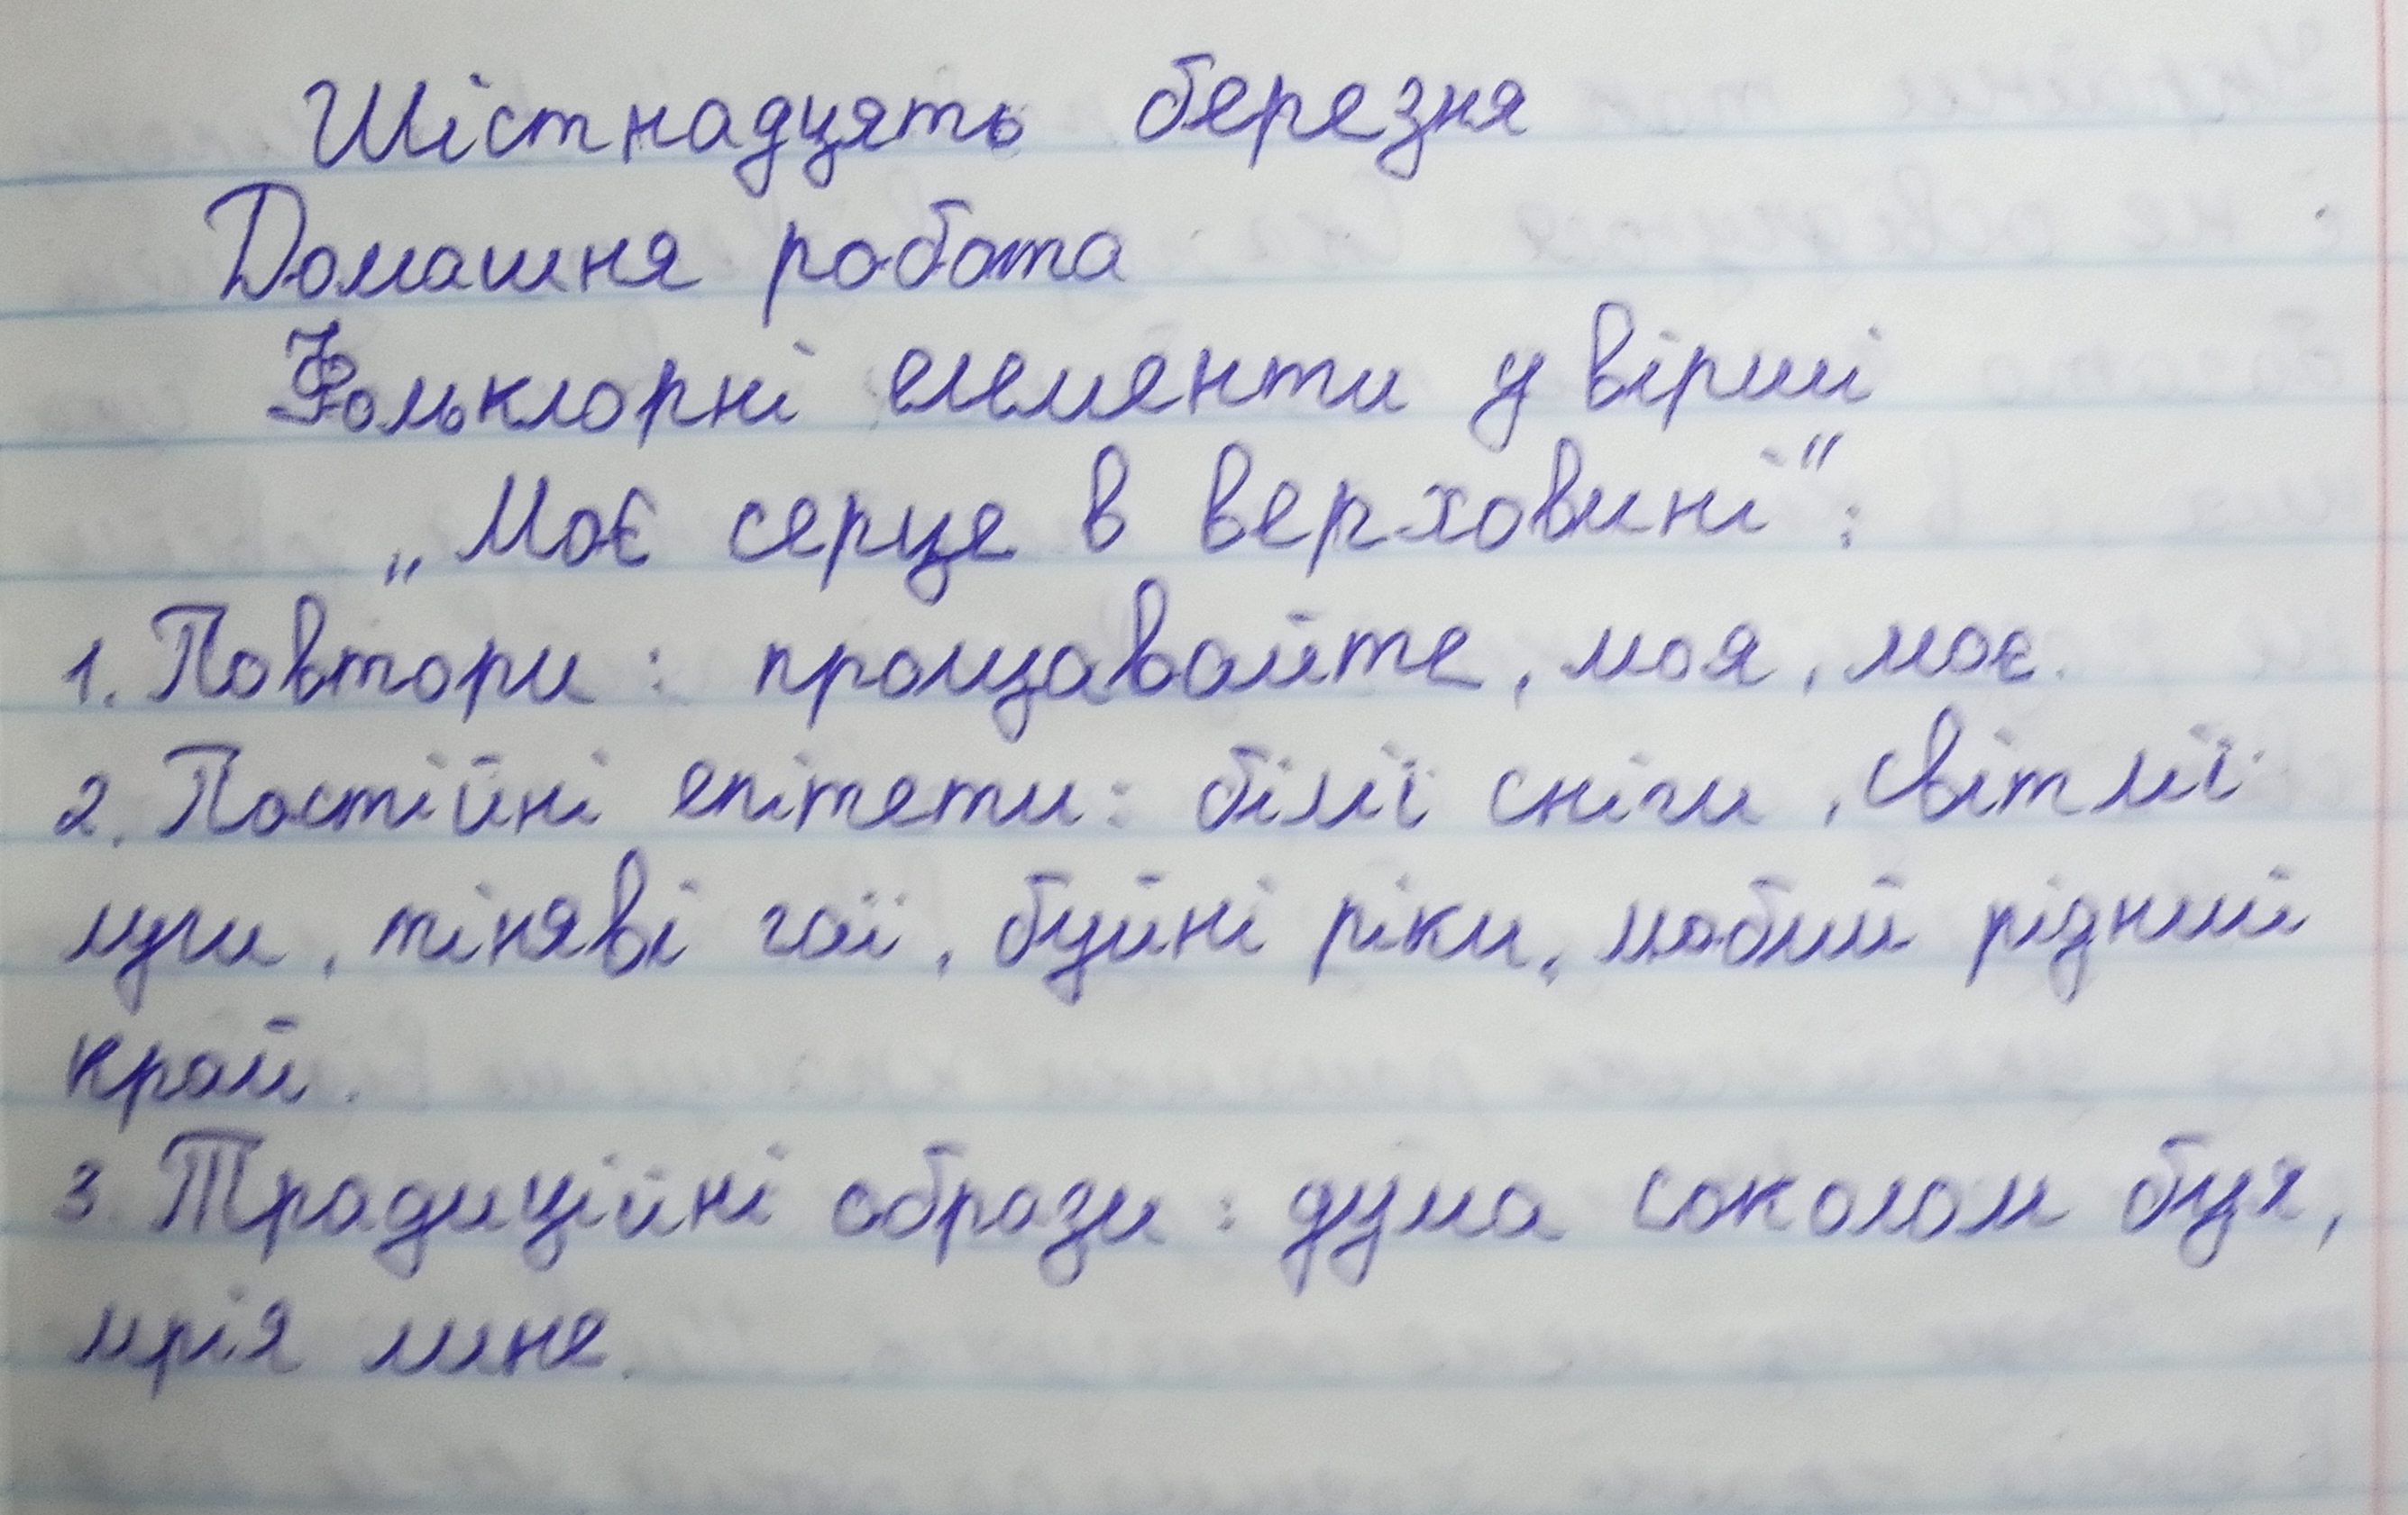 Шістнадцять березня
Домашня робота
Фольклорні елементи у вірші
„Моє серце в верховині":
1. Повтори: прощавайте, моя, моє.
2. Постійні епітети: білії сніги, світлії
луги, тіняві гаї, буйні ріки, любий рідний
край.
3. Традиційні образи: дума соколом буя,
мрія лине.